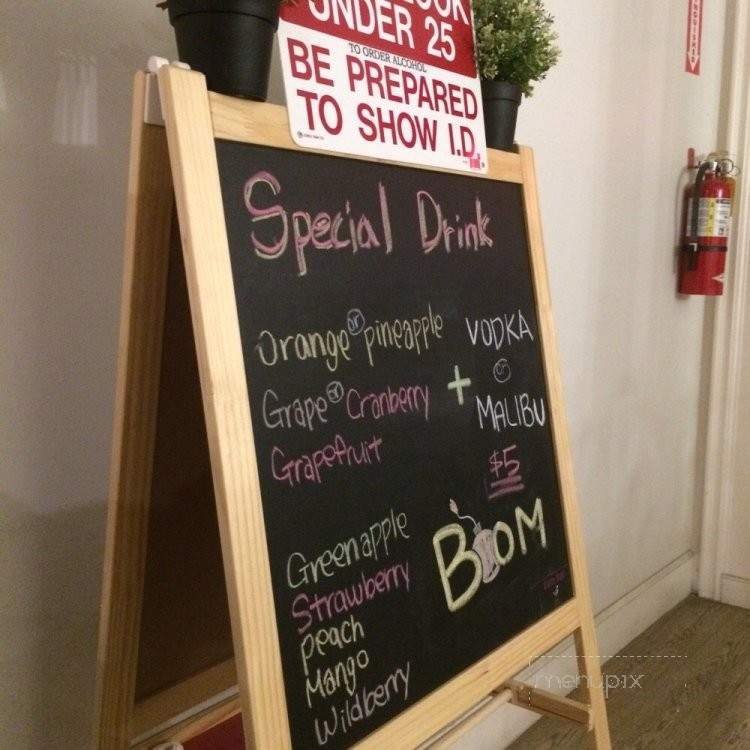 UNDER 25
TO ORDER ALCOHOL
BE PREPARED
TO SHOW I.D.
Special Drink
Orange or pineapple
Grape or Cranberry
Grapefruit
+
VODKA
or
MALIBU
$5
Green apple
Strawberry
peach
Mango
Wildberry
BOOM
menupix